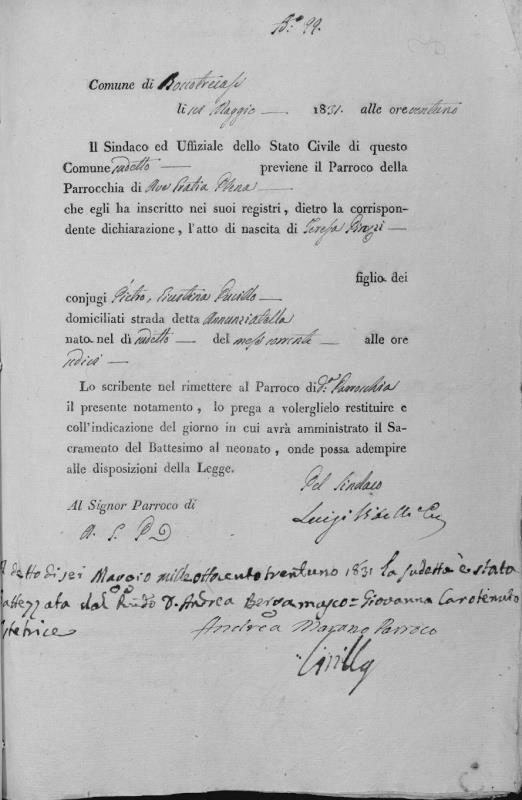 N.º 99.
Comune di Boscotrecase
li sei Maggio 1831. alle ore ventuno
Il Sindaco ed Uffiziale dello Stato Civile di questo
Comune sudetto previene il Parroco della
Parrocchia di Ave Gratia Plena
che egli ha inscritto nei suoi registri, dietro la corrispon-
dente dichiarazione, l'atto di nascita di Teresa
figlia dei
conjugi Pietro, Giustina Pucillo
domiciliati strada detta Annunziatella
nato nel dì sudetto del mese corrente alle ore
sedici
Lo scribente nel rimettere al Parroco di d.ª Parrocchia
il presente notamento, lo prega a volerglielo restituire e
coll'indicazione del giorno in cui avrà amministrato il Sa-
cramento del Battesimo al neonato, onde possa adempire
alle disposizioni della Legge.
Pel Sindaco
Al Signor Parroco di
A. G. P.
Luigi
detto dì sei Maggio mille ottocento trentuno 1831 la sudetta è stata
attezzata dal Rndo D. Andrea Bergamasco = Giovanna Carotenuto
Andrea Marano Parroco
Cirillo